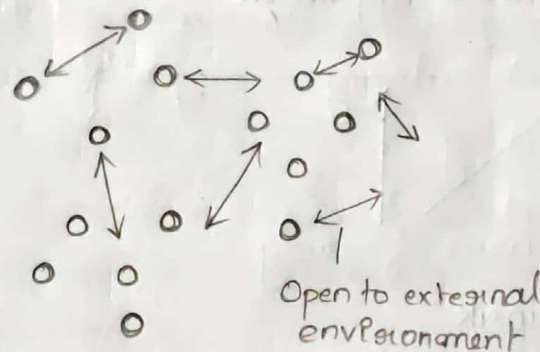 Open to external
environment